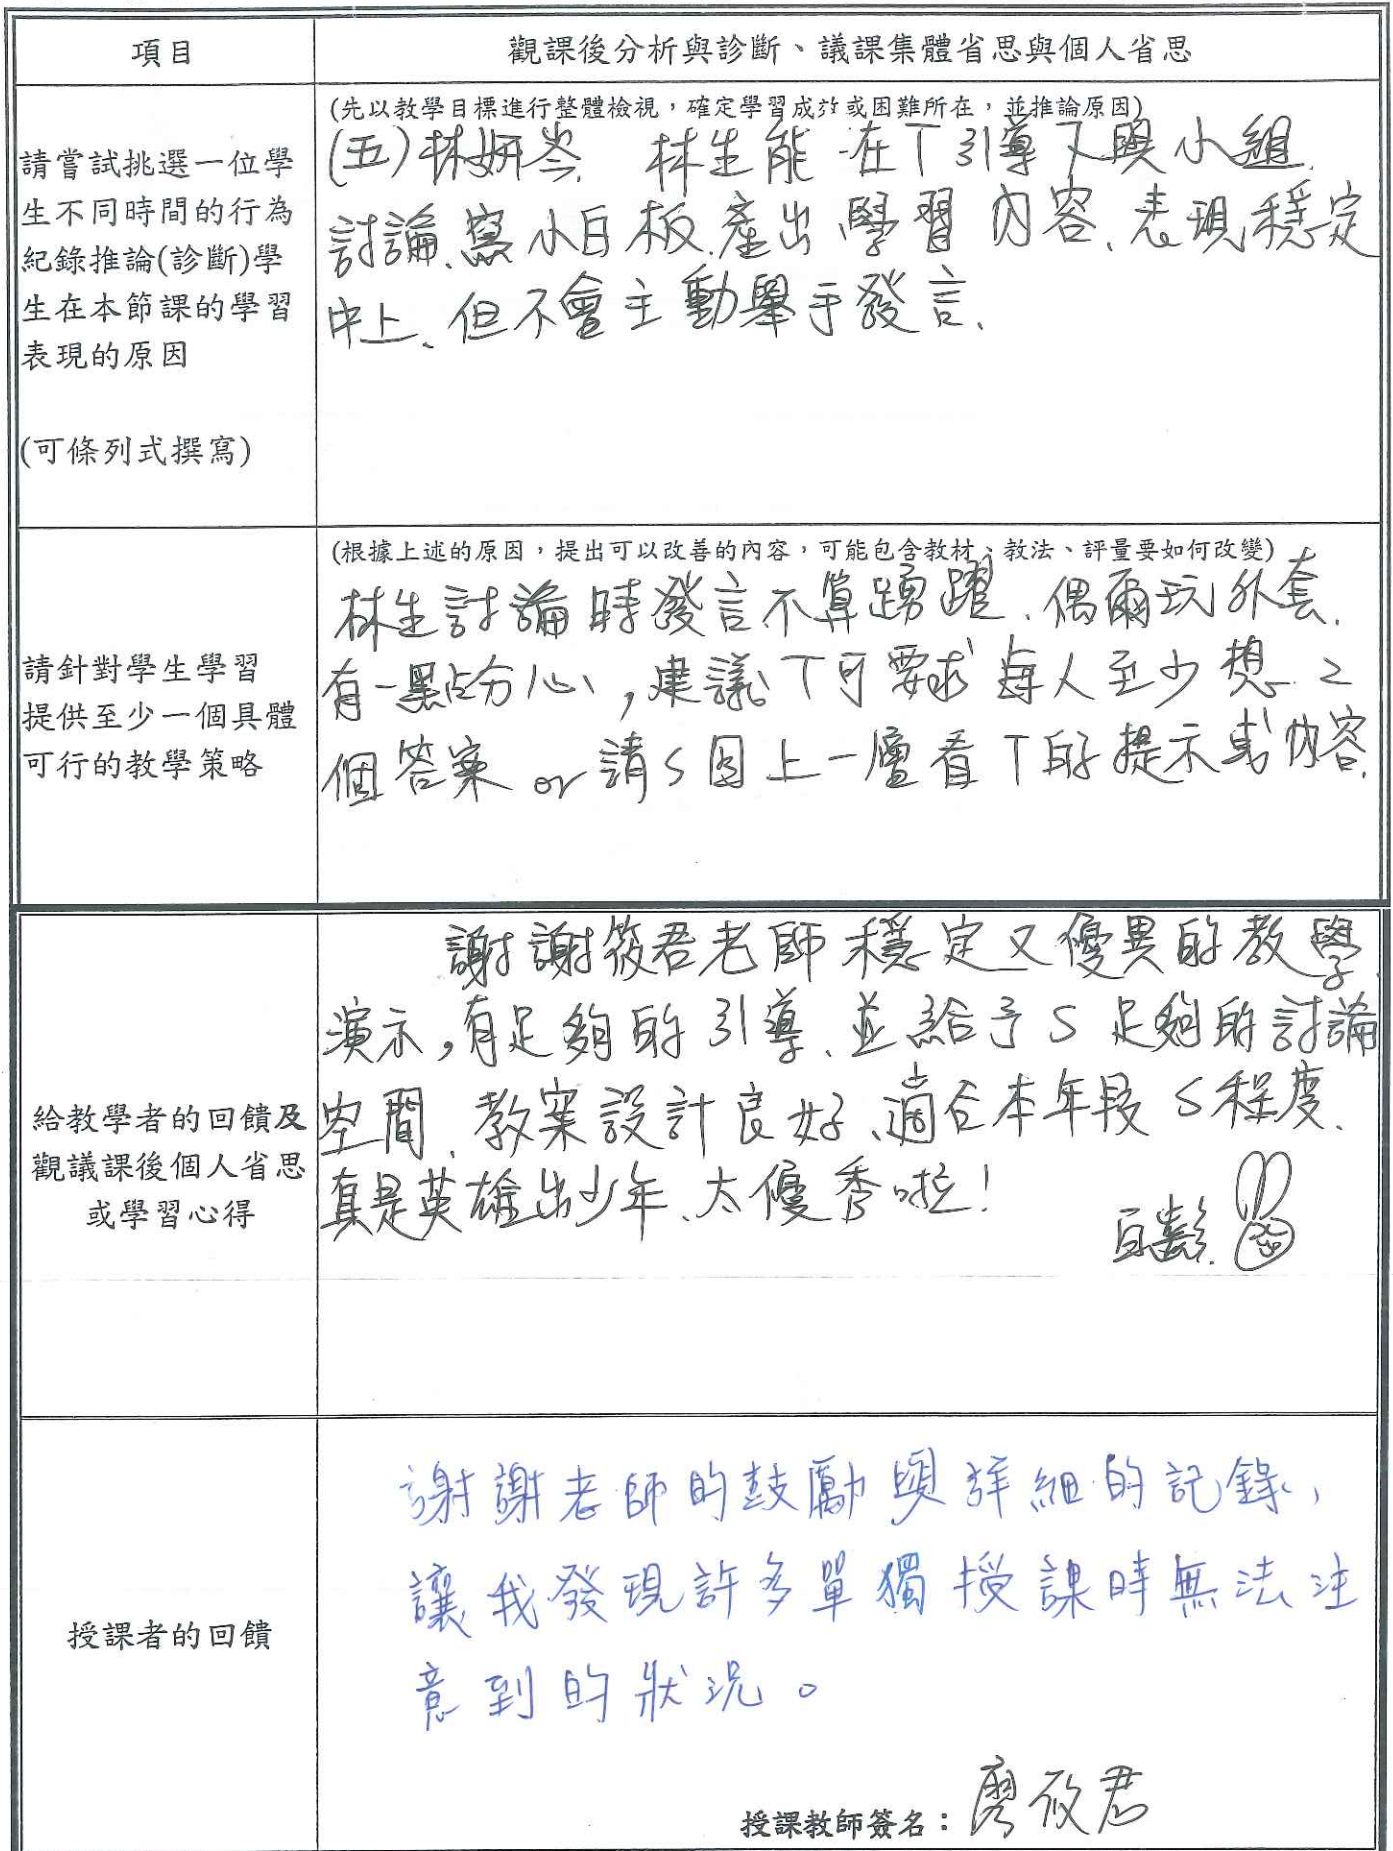 項目
觀課後分析與診斷、議課集體省思與個人省思
請嘗試挑選一位學
生不同時間的行為
紀錄推論(診斷)學
生在本節課的學習
表現的原因
(可條列式撰寫)
(先以教學目標進行整體檢視，確定學習成效或困難所在，並推論原因)
(五)林妍岑. 林生能在T引導下與小組
討論、寫小白板.產出學習內容、表現穩定
中上、但不會主動舉手發言、
請針對學生學習
提供至少一個具體
可行的教學策略
(根據上述的原因，提出可以改善的內容，可能包含教材、教法、評量要如何改變)
林生討論時發言不算踴躍、偶爾玩外套、
有一點分心，建議T可要求每人至少想2
個答案 or 請S回上一層看T的提示或內容.
給教學者的回饋及
觀議課後個人省思
或學習心得
謝謝筱君老師穩定又優異的教學
演示，有足夠的引導、並給予S足夠的討論
空間、教案設計良好、適合本年段S程度、
真是英雄出少年、太優秀啦！
授課者的回饋
謝謝老師的鼓勵與詳細的記錄，
讓我發現許多單獨授課時無法注
意到的狀況。
授課教師簽名：廖筱君